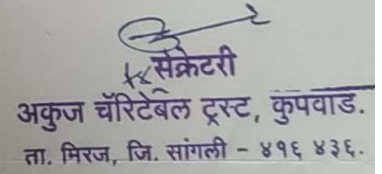 सेक्रेटरी
अकुज चॅरिटेबल ट्रस्ट, कुपवाड.
ता. मिरज, जि. सांगली - ४१६ ४३६.